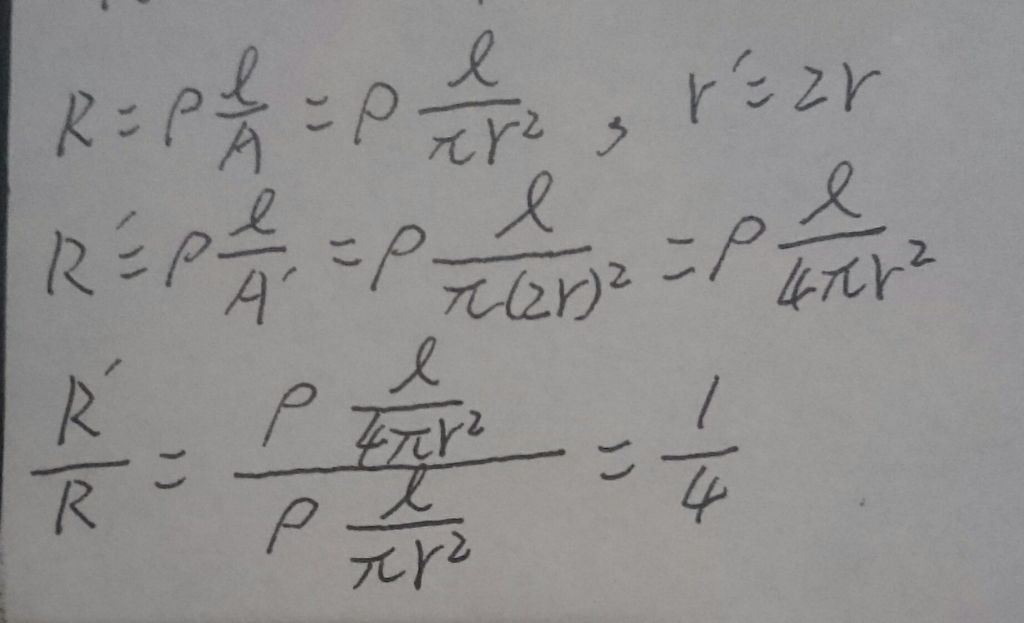 R = ρ l/A = ρ l/πr², r′ = 2r
R′ = ρ l/A′ = ρ l/π(2r)² = ρ l/4πr²
R′/R = (ρ l/4πr²)/(ρ l/πr²) = 1/4